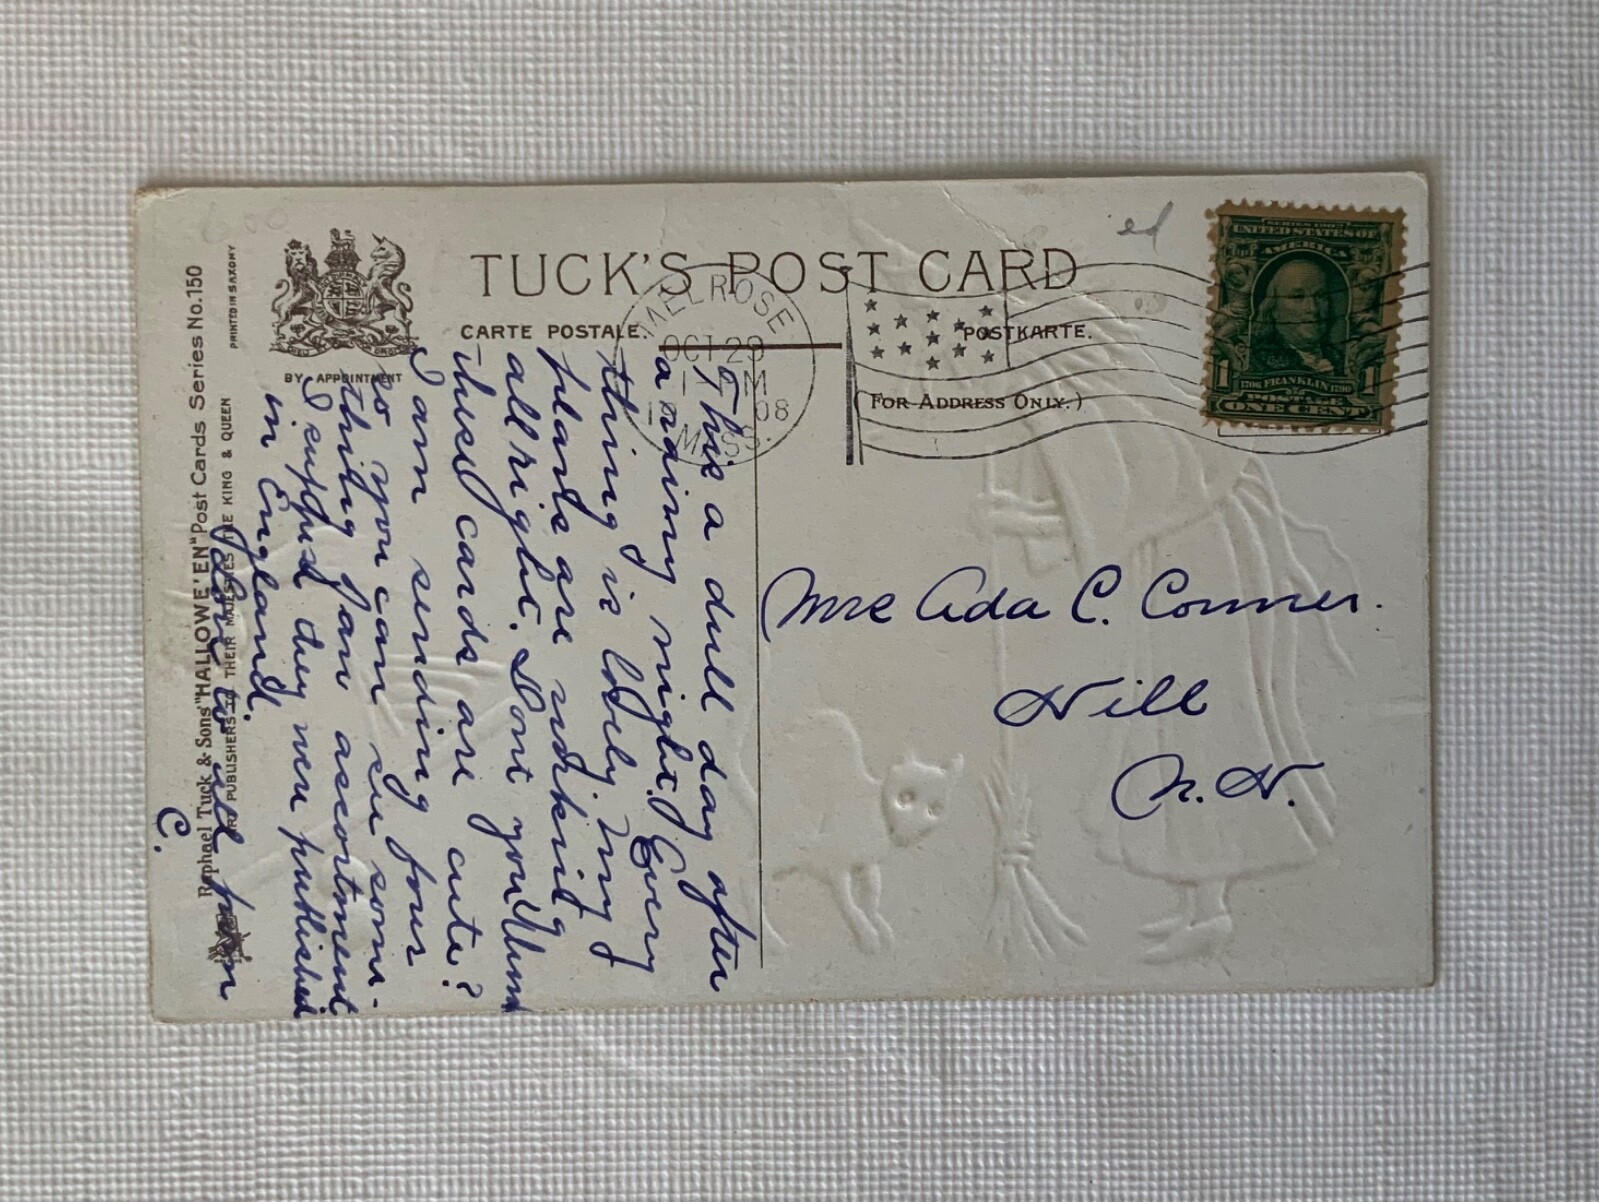 TUCK'S POST CARD
CARTE POSTALE.
POSTKARTE.
(FOR ADDRESS ONLY.)
BY APPOINTMENT
MELROSE
OCT 29
M
08
MASS.
SERIES 1902
UNITED STATES OF
AMERICA
1 1
1706 FRANKLIN 1790
POSTAGE
ONE CENT
ed
Raphael Tuck & Sons' "HALLOWE'EN" Post Cards Series No. 150
ART PUBLISHERS TO THEIR MAJESTIES THE KING & QUEEN
PRINTED IN SAXONY
This a dull day after
a rainy night. Every
thing is lovely. My
plans are working
all right. Dont you think
these cards are cute?
I am sending four
so you can see some-
thing for assortment
I suppose they were published
in England.
Love to all from
C.
Mrs Ada C. Conner.
Hill
N. H.